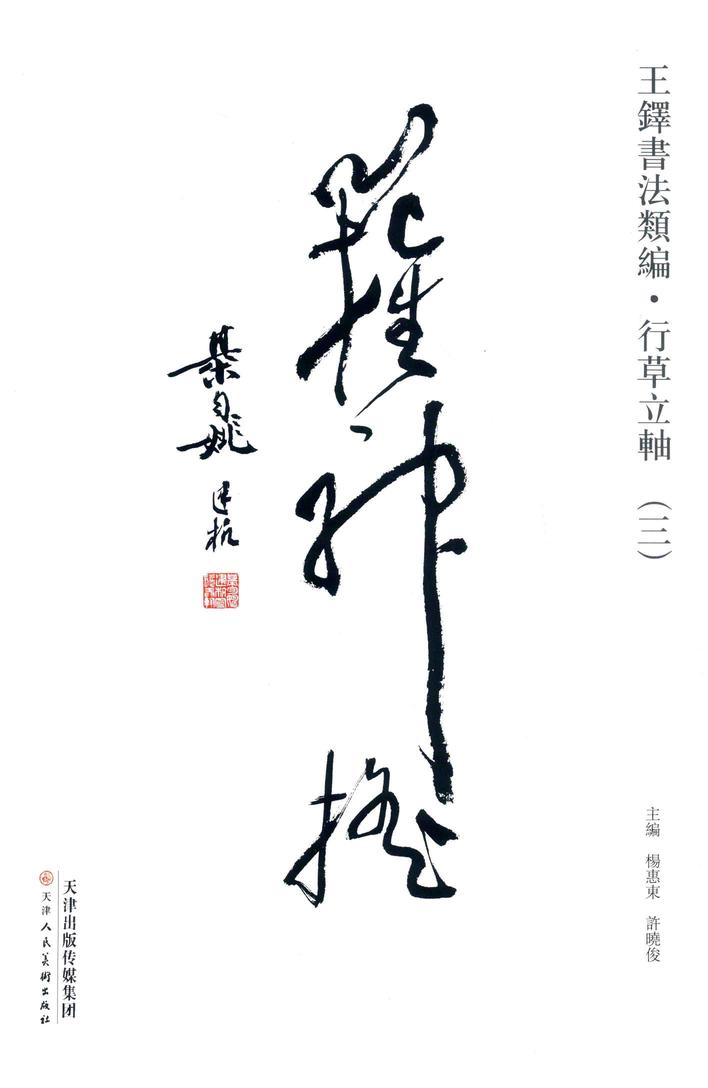 王鐸書法類編・行草立軸 (三)
主編 楊惠東 許曉俊
神
建杭
天津出版传媒集团
天津人民美術出版社